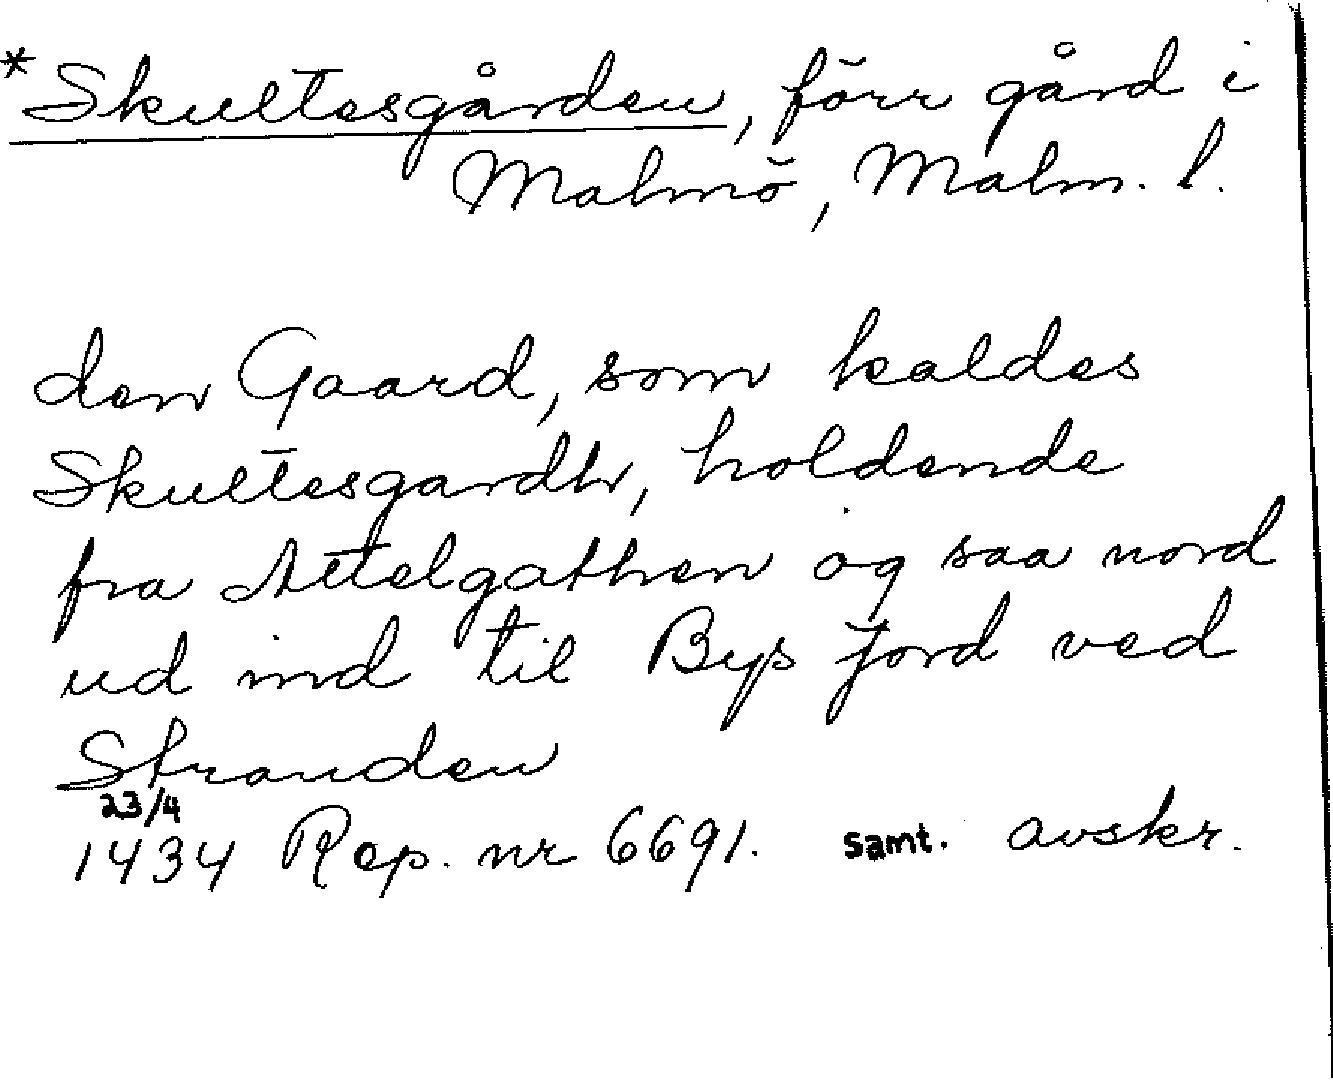 *Skultesgården, förr gård i
Malmö, Malm. l.
den Gaard, som kaldes
Skultesgardh, holdende
fra Attelgathen og saa nord
ud ind til Bys Jord ved
Stranden
23/4
1434 Rep. nr 6691. samt. avskr.